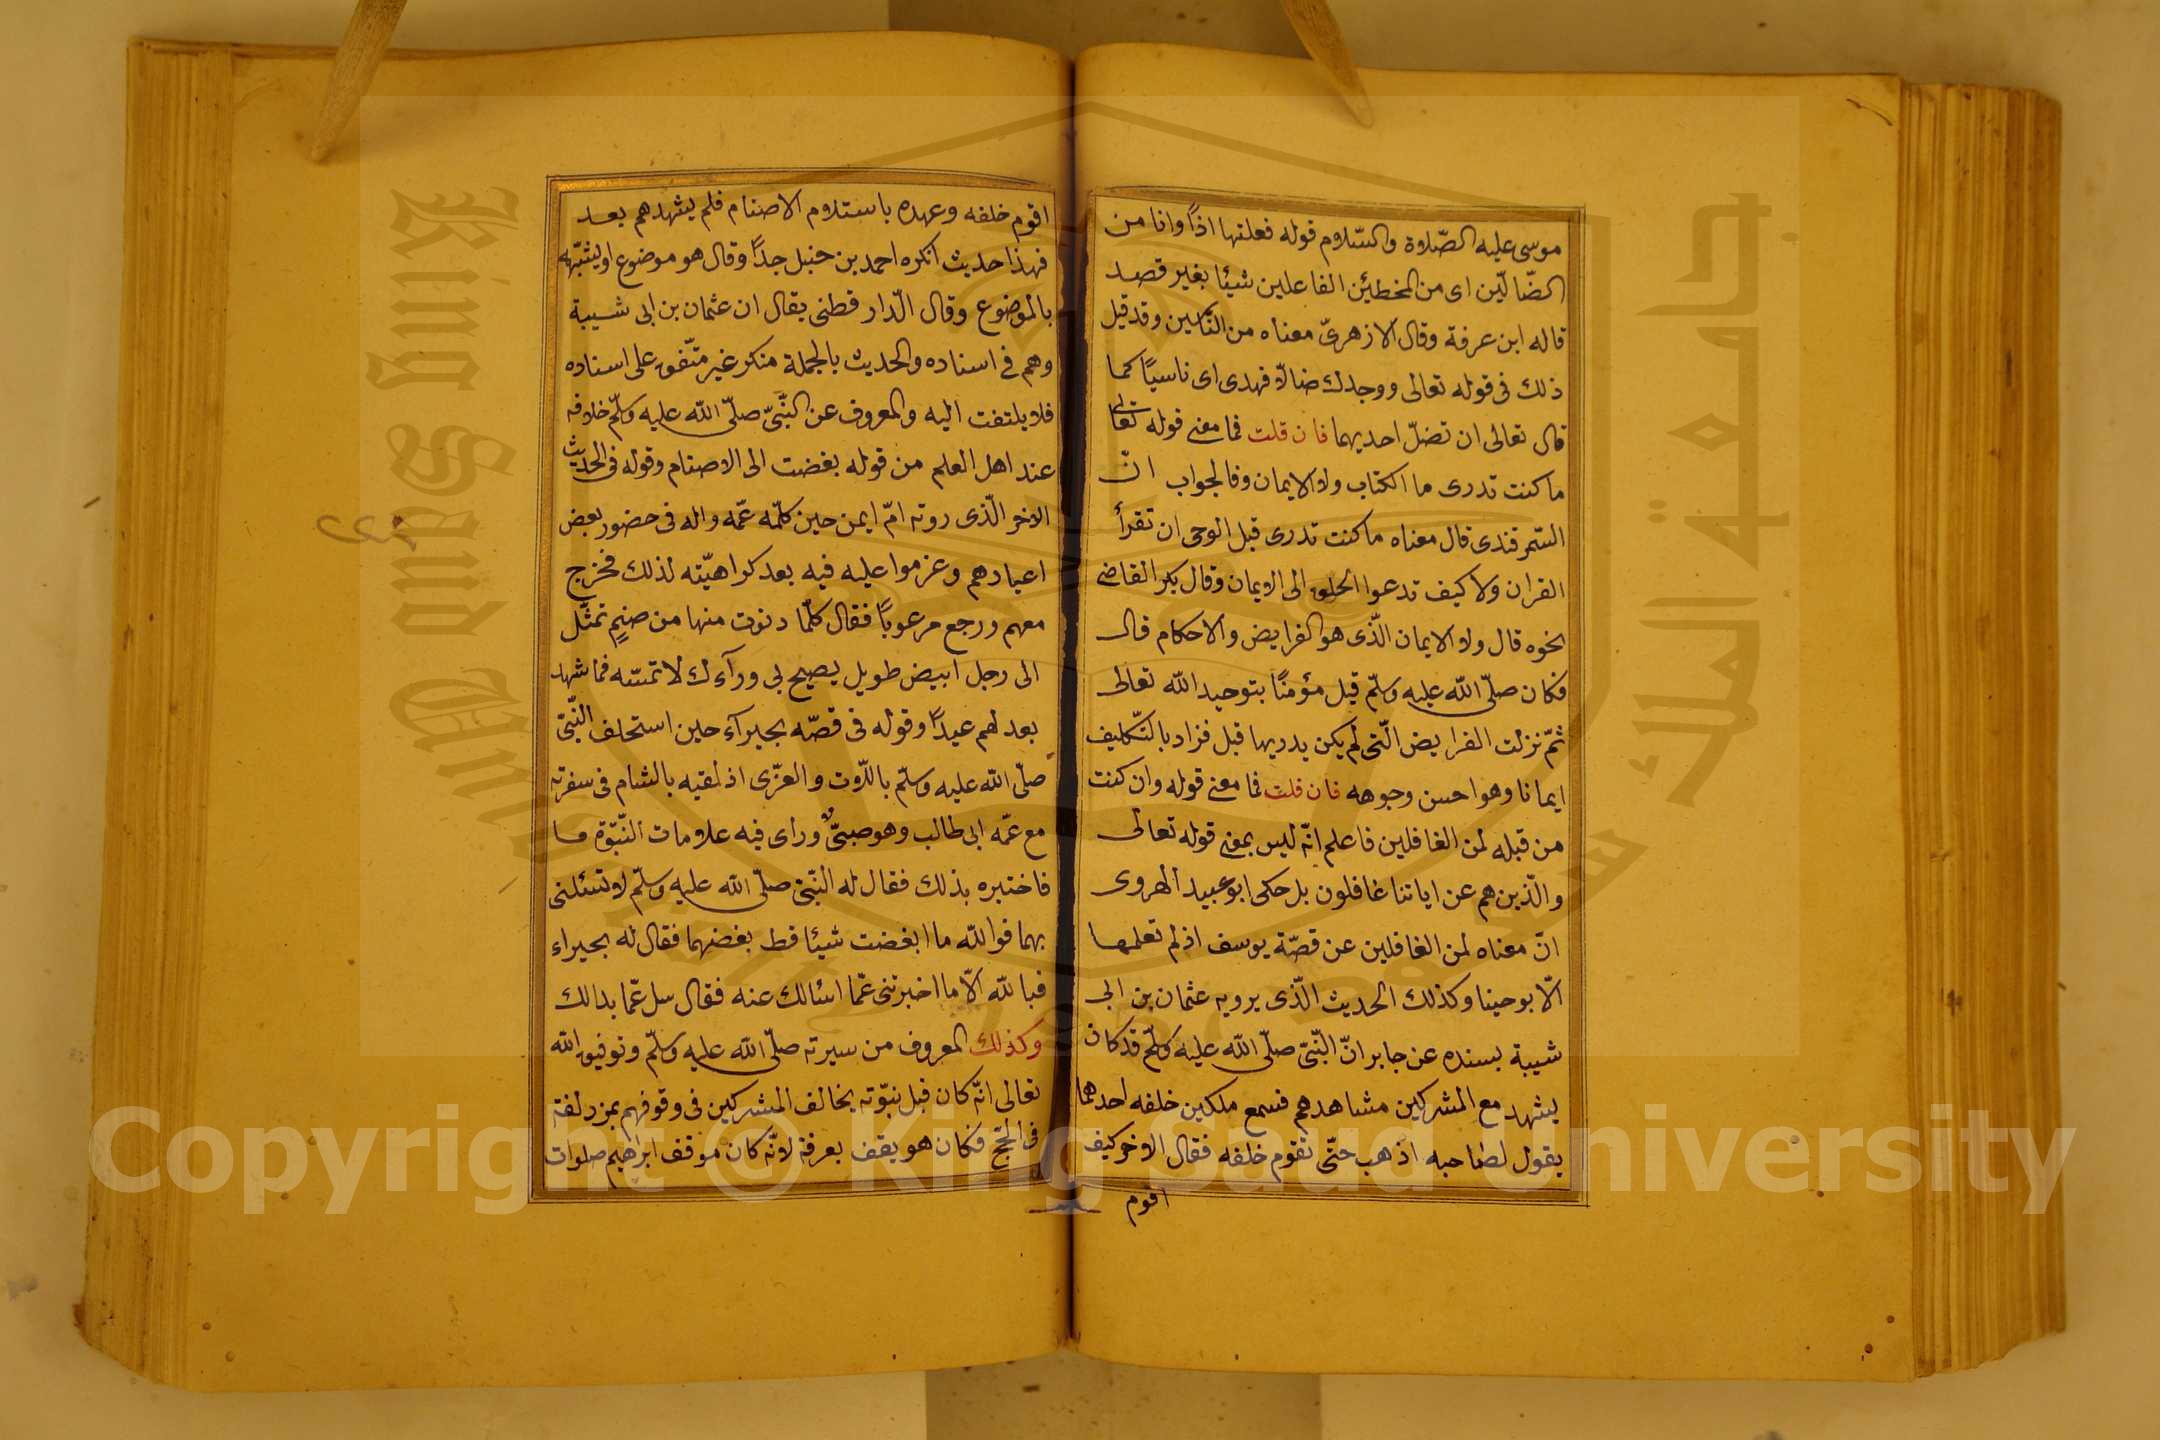 موسى عليه الصّلاة والسّلام قوله فعلتها اذاً وانا من
الضّالّين اى من المخطئين الفاعلين شيئا بغير قصد
قاله ابن عرفة وقال الازهرىّ معناه من النّاسين وقد قيل
ذلك فى قوله تعالى ووجدك ضالّا فهدى اى ناسياً كما
قال تعالى ان تضلّ احديهما فان قلت فما معنى قوله تعالى
ما كنت تدرى ما الكتاب ولا الايمان وفالجواب انّ
السّمرقندى قال معناه ما كنت تدرى قبل الوحى ان تقرأ
القران ولا كيف تدعوا الخلق الى الايمان وقال بكر القاضى
نحوه قال ولا الايمان الّذى هو الفرايض والاحكام قال
فكان صلّى الله عليه وسلّم قبل مؤمنًا بتوحيد الله تعالى
ثمّ نزلت الفرايض الّتى لم يكن يدريها قبل فزاد بالتّكليف
ايمانا وهو احسن وجوهه فان قلت فما معنى قوله وان كنت
من قبله لمن الغافلين فاعلم انّه ليس بمعنى قوله تعالى
والّذين هم عن اياتنا غافلون بل حكى ابو عبيد الهروى
انّ معناه لمن الغافلين عن قصّة يوسف اذ لم تعلمها
الّا بوحينا وكذلك الحديث الّذى يرويه عثمان بن ابى
شيبة بسنده عن جابر انّ النّبىّ صلّى الله عليه وسلّم قد كان
يشهد مع المشركين مشاهدهم فسمع ملكين خلفه احدهما
يقول لصاحبه اذهب حتّى تقوم خلفه فقال الاخر كيف
اقوم
اقوم خلفه وعهده باستلام الاصنام فلم يشهدهم بعد
فهذا حديث انكره احمد بن حنبل جدّاً وقال هو موضوع او يشبّهه
بالموضوع وقال الّدارقطنى يقال ان عثمان بن ابى شيبة
وهم فى اسناده والحديث بالجملة منكر غير متّفق على اسناده
فلا يلتفت اليه والمعروف عن النّبىّ صلّى الله عليه وسلّم خلافه
عند اهل العلم من قوله بغضت الى الاصنام وقوله فى الحديث
الاخر الّذى روته امّ ايمن حين كلّمه عمّه واله فى حضور بعض
اعيادهم وعزموا عليه فيه بعد كراهيّته لذلك فخرج
معهم ورجع مرعوبًا فقال كلّما دنوت منها من صنمٍ تمثّل
الى رجل ابيض طويل يصيح بى ورآءك لا تمسّه فما شهد
بعد لهم عيداً وقوله فى قصّه بحيرآء حين استحلف النّبىّ
صلّى الله عليه وسلّم باللّات والعزّى اذ لقيه بالشام فى سفرته
مع عمّه ابى طالب وهو صبىٌّ وراى فيه علامات النّبوّة ما
فاختبره بذلك فقال له النّبىّ صلّى الله عليه وسلّم لا تسئلنى
بهما فوالله ما ابغضت شيئا قط بغضهما فقال له بحيراء
فبالله الّا ما اخبرتنى عمّا اسالك عنه فقال سل عمّا بدا لك
وكذلك المعروف من سيرته صلّى الله عليه وسلّم وتوفيق الله
تعالى انّه كان قبل نبوّته يخالف المشركين فى وقوفهم بمزدلفة
فى الحجّ فكان هو يقف بعرفة لانّه كان موقف ابراهيم صلوات
King Saud University
جامعة الملك سعود
Copyright © King Saud University